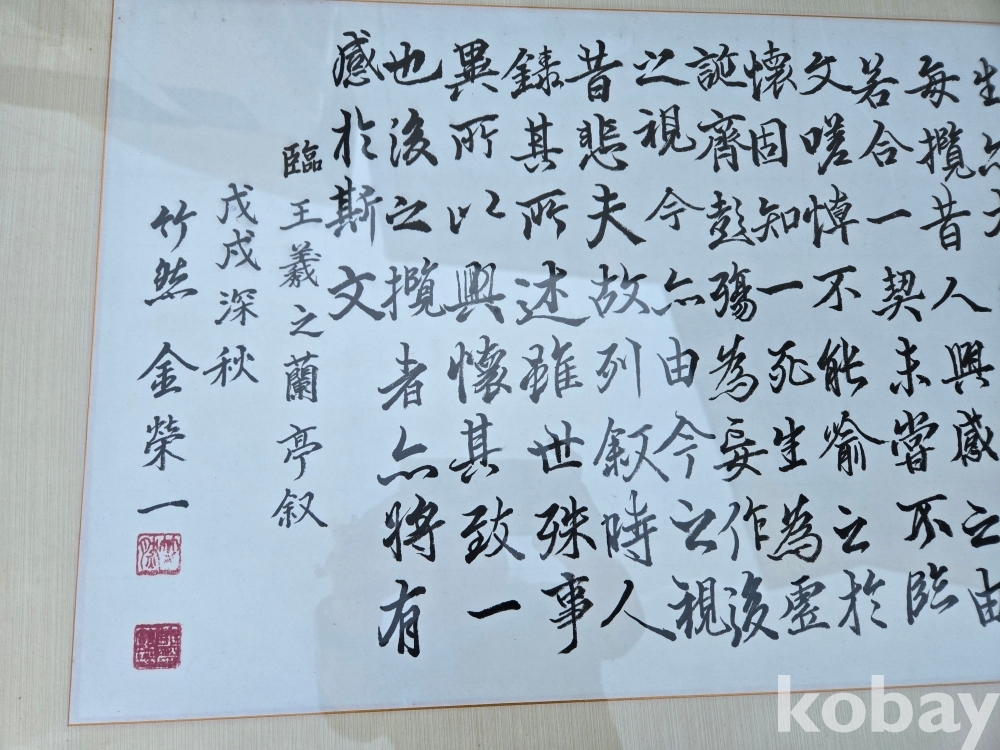 生亦大
每攬昔人興感之由
若合一契未嘗不臨
文嗟悼不能喻之於
懷固知一死生為虛
誕齊彭殤為妄作後
之視今亦由今之視
昔悲夫故列叙時人
錄其所述雖世殊事
異所以興懷其致一
也後之攬者亦將有
感於斯文
臨王羲之蘭亭叙
戊戌深秋
竹然 金榮一
kobay